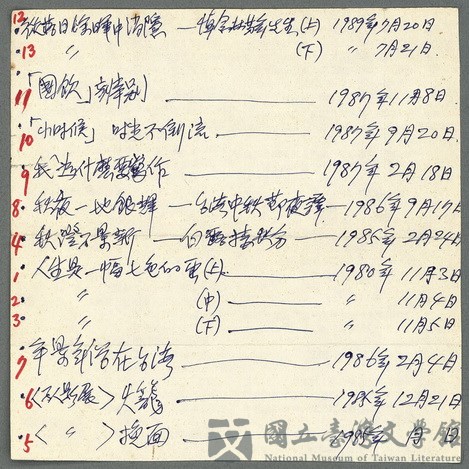 12. 從落日餘暉中消隱 — 悼余林斯先生(上) 1989年7月20日
13 〃 (下) 〃 7月21日.
11 「國飲」創傷别 1987年11月8日.
10 「小时候」时光不倒流 1987年9月20日.
9 我為什麼要寫作 1987年2月18日
8. 秋夜一地銀輝 — 台灣中秋節夜譚 — 1986年9月17日
4 秋燈不景新 — 白露接秋分 — 1985年2月24日
1 人生是一幅七色的畫(上). 1980年11月3日
2. 〃 (中) 〃 11月4日
3. 〃 (下) 〃 11月5日
7 年景年俗在台湾 1986年2月4日
6 〈 〉失籠 1985年12月21日
5 〈 〃 〉換面 1985年 月 日
國立臺灣文學館
National Museum of Taiwan Literature